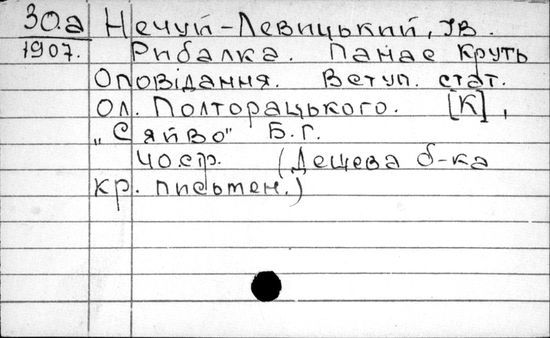 30.а Нечуй-Левицький, Ів.
1907. Рибалка. Панас Круть
Оповідання. Вступ. стат.
Ол. Полторацького. [К],
„Сяйво" Б.Г.
40стр. (Дешева б-ка
кр. письмен.)